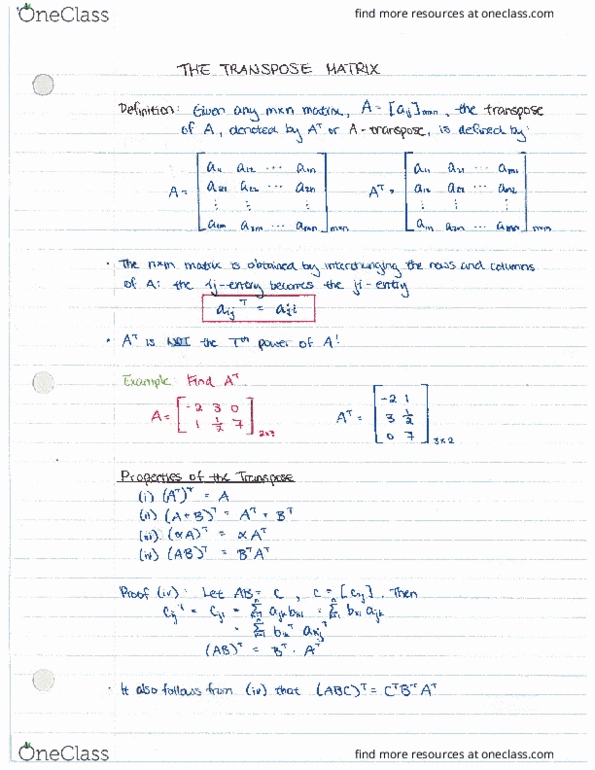 OneClass
find more resources at oneclass.com
THE TRANSPOSE MATRIX
Definition: Given any mxn matrix, A = [aij]mxn, the transpose
of A, denoted by Aᵀ or A-transpose, is defined by:
A = [a11 a12 ... a1n
a21 a22 ... a2n
⋮ ⋮ ⋮
am1 am2 ... amn] mxn
Aᵀ = [a11 a21 ... am1
a12 a22 ... am2
⋮ ⋮ ⋮
a1n a2n ... amn]
• The nxm matrix is obtained by interchanging the rows and columns
of A: the ij-entry becomes the ji-entry
aijᵀ = aji
• Aᵀ is NOT the Tth power of A!
Example: Find Aᵀ.
A = [-2 3 0
1 1/2 7] 2x3
Aᵀ = [-2 1
3 1/2
0 7] 3x2
Properties of the Transpose
(i) (Aᵀ)ᵀ = A
(ii) (A + B)ᵀ = Aᵀ + Bᵀ
(iii) (αA)ᵀ = αAᵀ
(iv) (AB)ᵀ = BᵀAᵀ
Proof (iv): Let AB = C, C = [cij]. Then
cijᵀ = cji = Σ ajk bki = Σ bki ajk
= Σ bikᵀ akjᵀ
(AB)ᵀ = Bᵀ · Aᵀ
• It also follows from (iv) that (ABC)ᵀ = CᵀBᵀAᵀ
OneClass
find more resources at oneclass.com